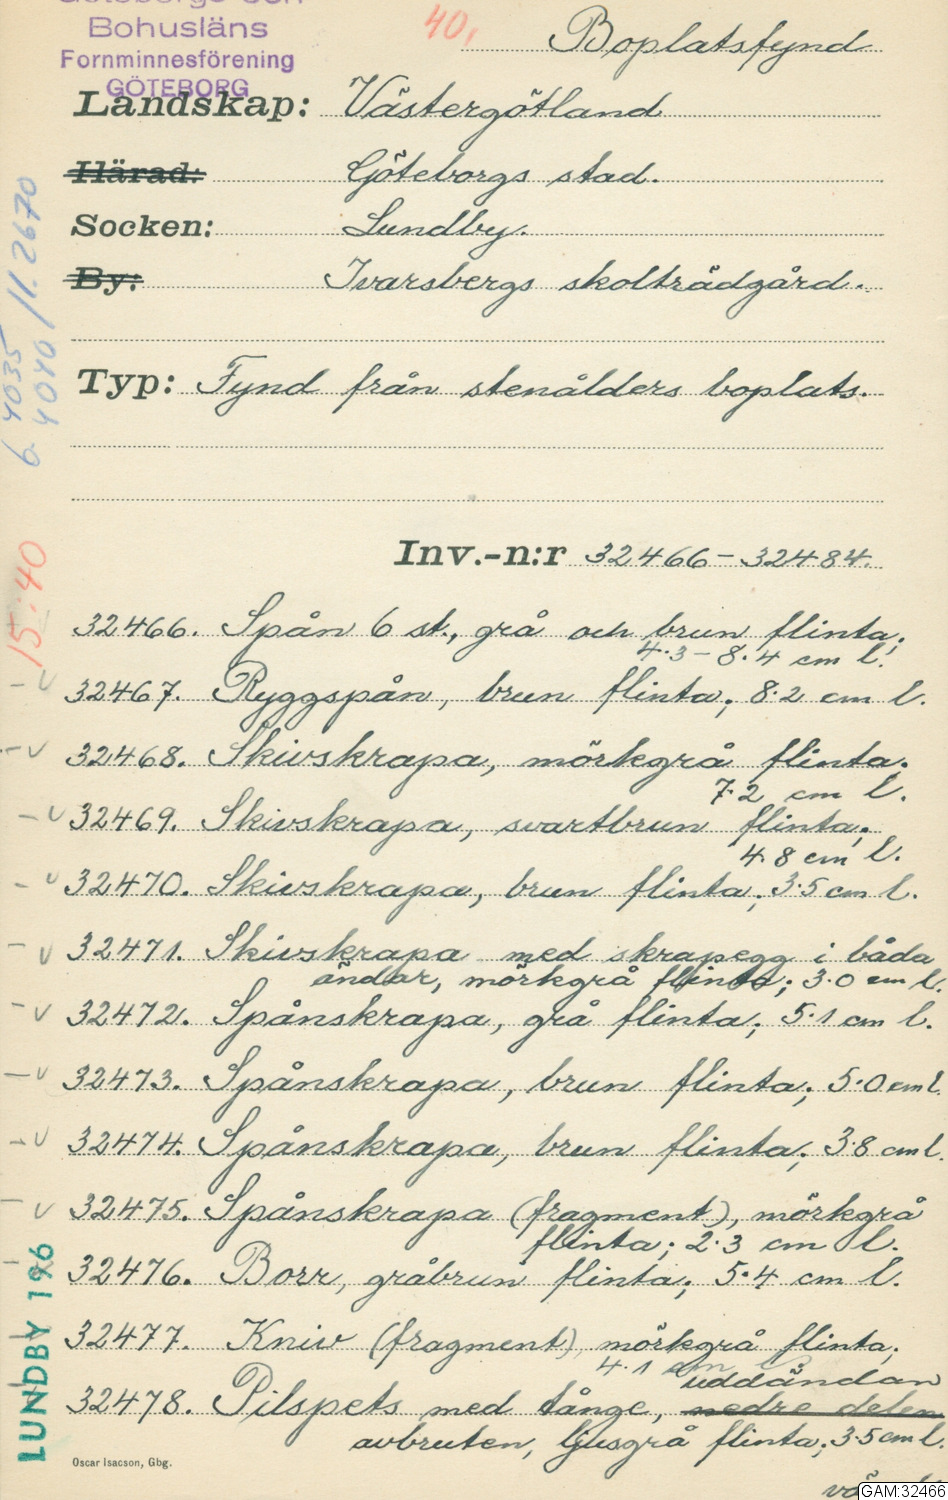 Göteborgs och
Bohusläns
Fornminnesförening
GÖTEBORG
40.
Boplatsfynd
Landskap: Västergötland
Härad: Göteborgs stad.
Socken: Lundby.
By: Ivarsbergs skolträdgård.
Typ: Fynd från stenålders boplats.
Inv.-n:r 32466-32484.
32466. Spån 6 st., grå och brun flinta;
4.3-8.4 cm l.
32467. Ryggspån, brun flinta; 8.2 cm l.
32468. Skivskrapa, mörkgrå flinta;
7.2 cm l.
32469. Skivskrapa, svartbrun flinta;
4.8 cm l.
32470. Skivskrapa, brun flinta; 3.5 cm l.
32471. Skivskrapa med skrapegg i båda
ändar, mörkgrå flinta; 3.0 cm l.
32472. Spånskrapa, grå flinta; 5.1 cm l.
32473. Spånskrapa, brun flinta; 5.0 cm l.
32474. Spånskrapa, brun flinta; 3.8 cm l.
32475. Spånskrapa (fragment), mörkgrå
flinta; 2.3 cm l.
32476. Borr, gråbrun flinta; 5.4 cm l.
32477. Kniv (fragment), mörkgrå flinta;
4.1 cm l.
uddändan
32478. Pilspets med tånge, nedre delen
avbruten, ljusgrå flinta; 3.5 cm l.
Oscar Isacson, Gbg.
6 4035 / 11.2670
4040
15:40
LUNDBY 196
GAM:32466